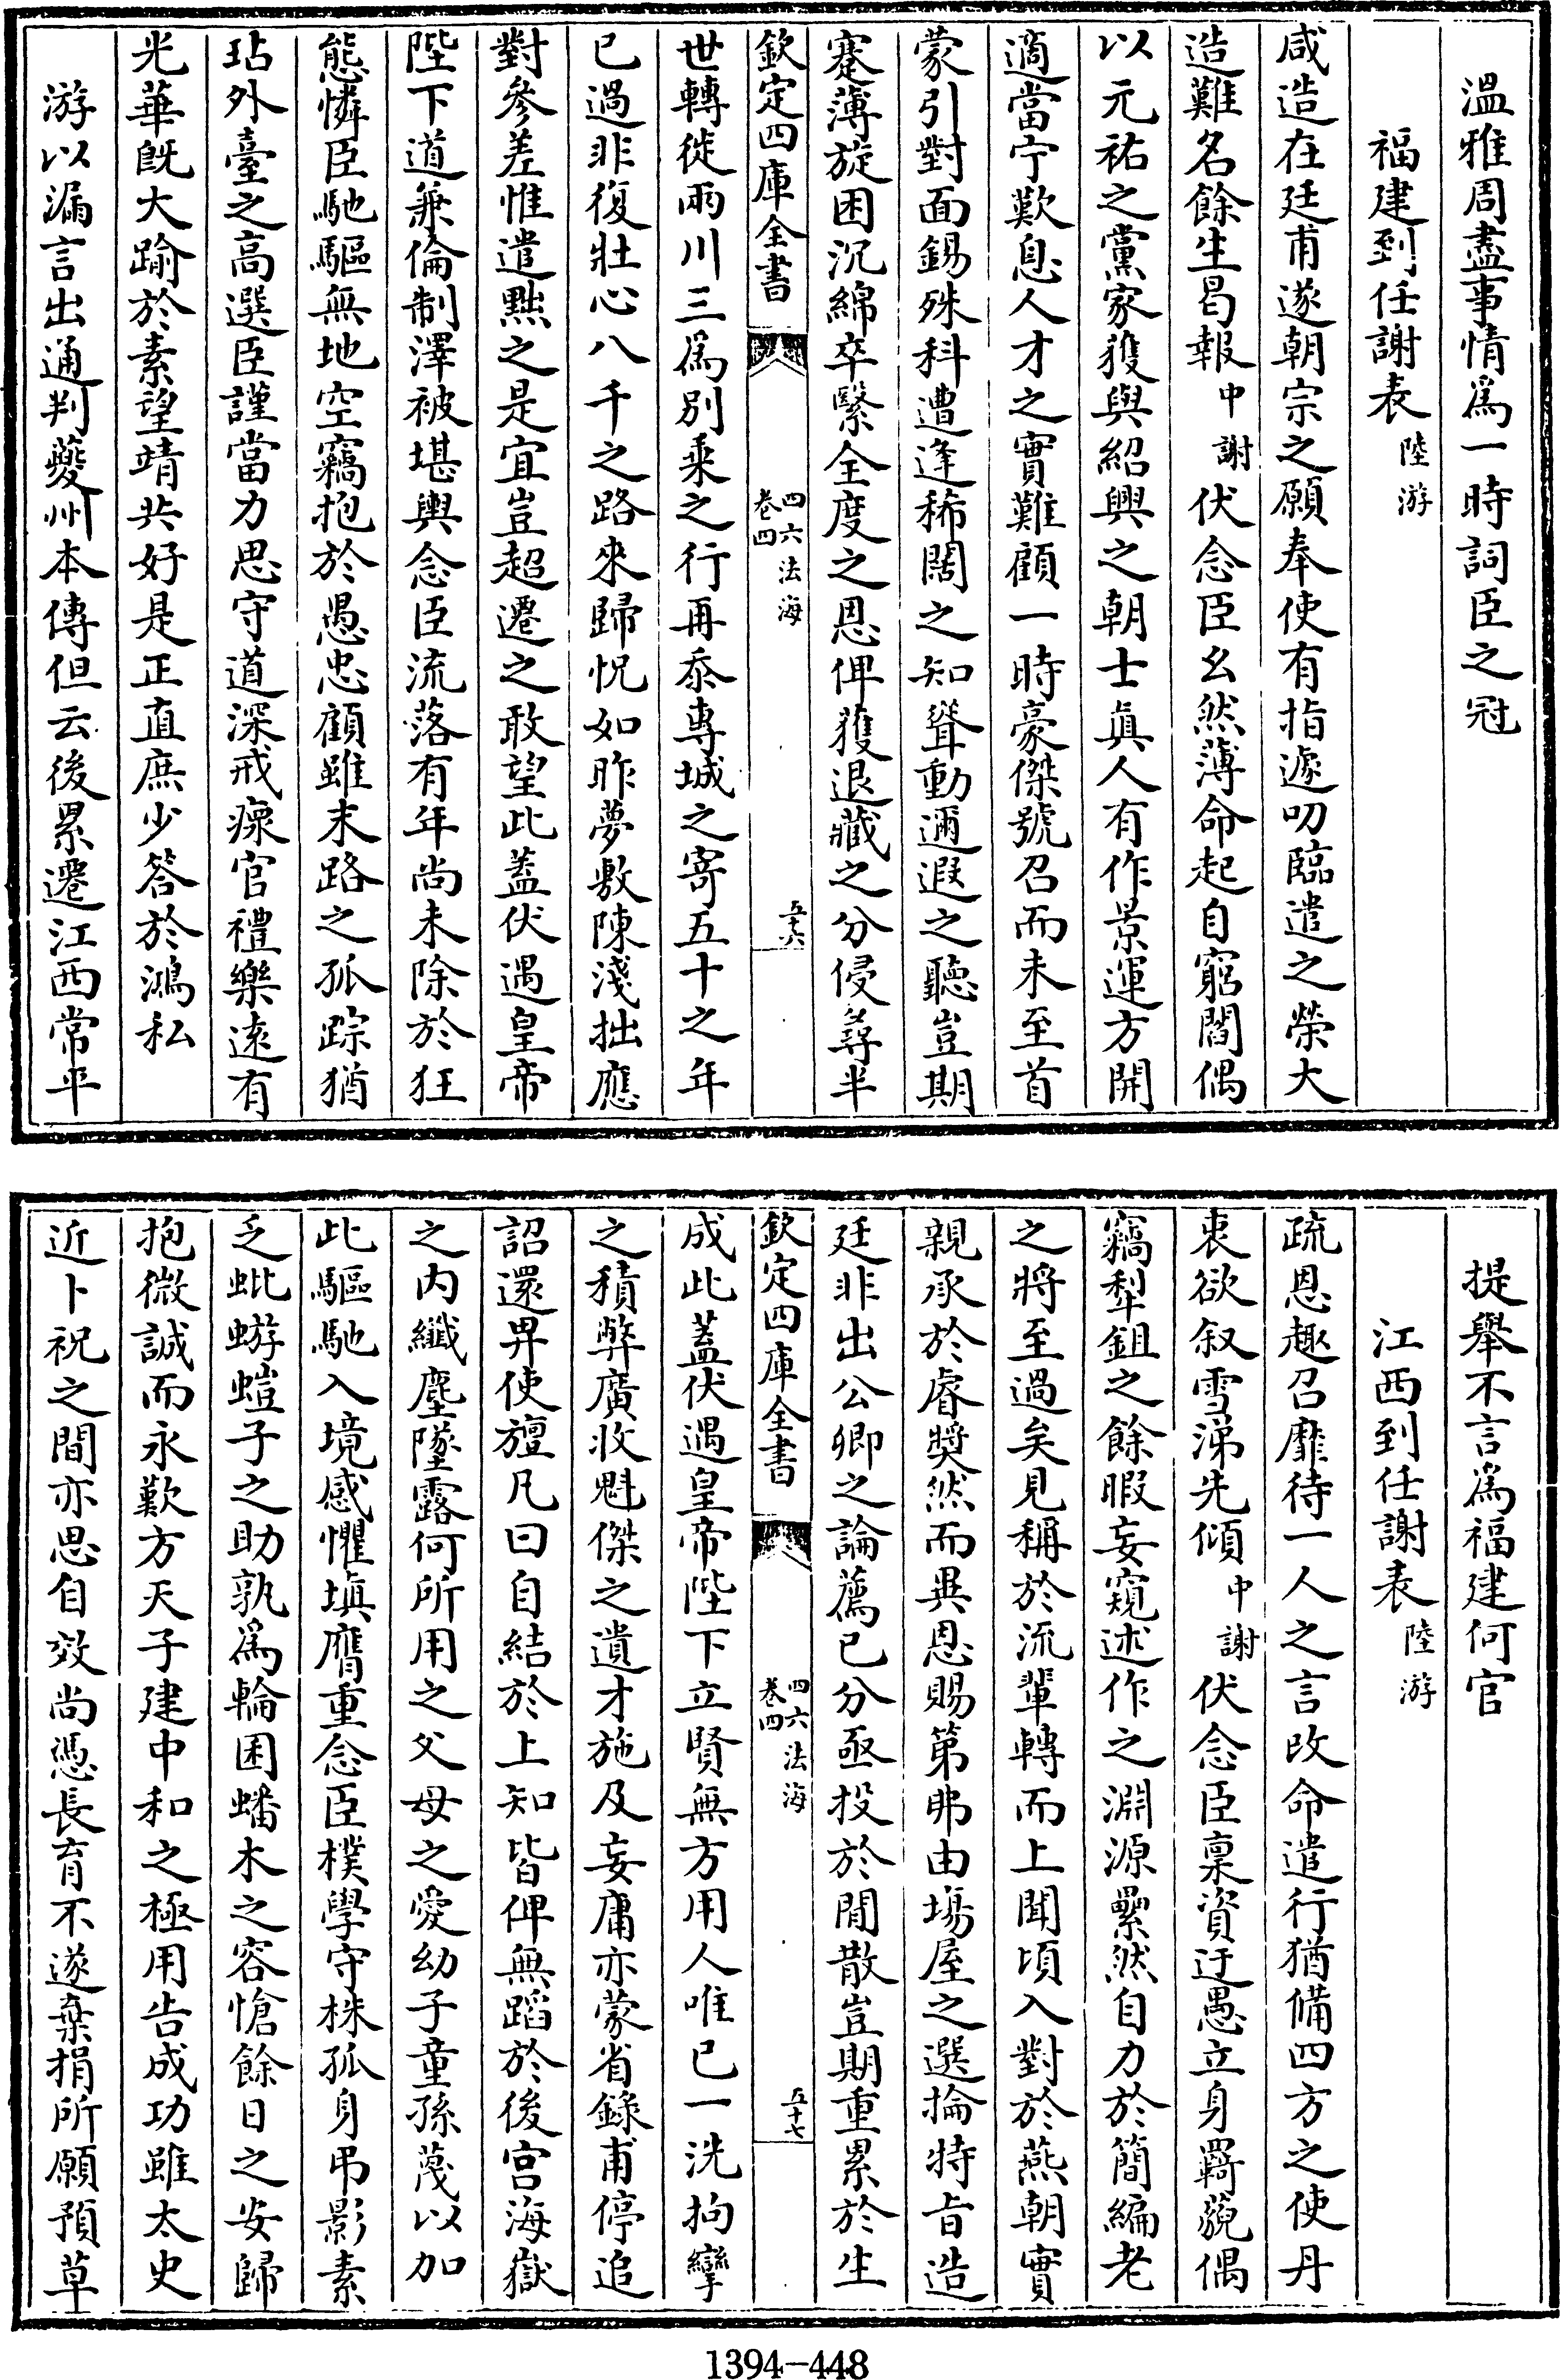 溫雅周盡事情爲一時詞臣之冠
福建到任謝表陸游
咸造在廷甫遂朝宗之願奉使有指遽叨臨遣之榮大
造難名餘生曷報中謝伏念臣幺然薄命起自窮閻偶
以元祐之黨家獲與紹興之朝士眞人有作景運方開
適當宁歎息人才之實難顧一時豪傑號召而未至首
蒙引對面錫殊科遭逢稀闊之知聳動邇遐之聽豈期
蹇薄旋困沉綿卒繄全度之恩俾獲退藏之分侵尋半
欽定四庫全書
四六法海
卷四
五十六
世轉徙兩川三爲別乘之行再忝專城之寄五十之年
已過非復壯心八千之路來歸怳如昨夢敷陳淺拙應
對參差惟遣黜之是宜豈超遷之敢望此蓋伏遇皇帝
陛下道兼倫制澤被堪輿念臣流落有年尚未除於狂
態憐臣馳驅無地空竊抱於愚忠顧雖末路之孤踪猶
玷外臺之高選臣謹當力思守道深戒瘝官禮樂遠有
光華旣大踰於素望靖共好是正直庶少答於鴻私
游以漏言出通判夔州本傳但云後累遷江西常平
提舉不言爲福建何官
江西到任謝表陸游
疏恩趣召靡待一人之言改命遣行猶備四方之使丹
衷欲叙雪涕先傾中謝伏念臣稟資迂愚立身羇藐偶
竊犁鉏之餘暇妄窺述作之淵源纍然自力於簡編老
之將至過矣見稱於流輩轉而上聞頃入對於燕朝實
親承於睿獎然而異恩賜第弗由塲屋之選掄特旨造
廷非出公卿之論薦已分亟投於閒散豈期重累於生
欽定四庫全書
四六法海
卷四
五十七
成此蓋伏遇皇帝陛下立賢無方用人唯已一洗拘攣
之積弊廣收魁傑之遺才施及妄庸亦蒙省錄甫停追
詔還畀使旜凡曰自結於上知皆俾無蹈於後宮海嶽
之内纖塵墜露何所用之父母之愛幼子童孫蔑以加
此驅馳入境感懼塡膺重念臣樸學守株孤身弔影素
乏蚍蜉螘子之助孰爲輪囷蟠木之容愴餘日之安歸
抱微誠而永歎方天子建中和之極用告成功雖太史
近卜祝之間亦思自效尚憑長育不遂棄捐所願預草
1394-448